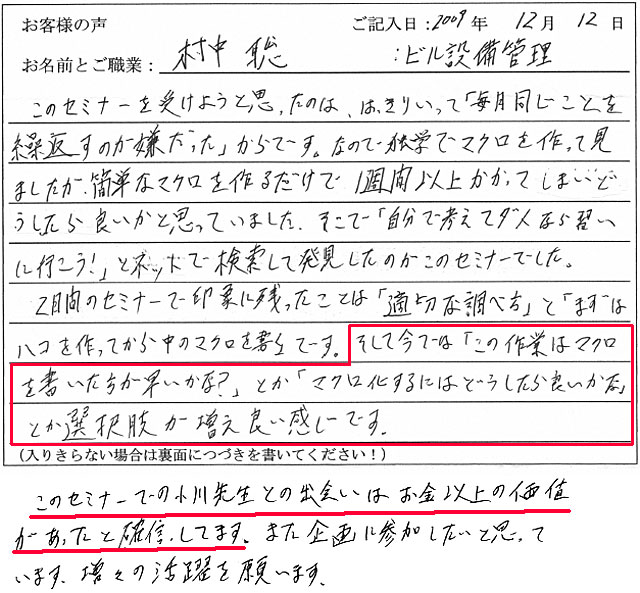 お客様の声 ご記入日:2009年 12月 12日
お名前とご職業: 村中 聡 :ビル設備管理
このセミナーを受けようと思ったのは、はっきりいって「毎月同じことを
繰返すのが嫌だった」からです。なので独学でマクロを作って見
ましたが、簡単なマクロを作るだけで 1週間以上かかってしまいど
うしたら良いかと思っていました。そこで「自分で考えてダメなら習い
に行こう!」とネットで検索して発見したのがこのセミナーでした。
2日間のセミナーで印象に残ったことは「適切な調べ方」と「まずは
ハコを作ってから中のマクロを書く」です。そして今では「この作業はマクロ
を書いた方が早いかな?」とか「マクロ化するにはどうしたら良いかな」
とか選択肢が増え良い感じです。
(入りきらない場合は裏面につづきを書いてください!)
このセミナーでの小川先生との出会いはお金以上の価値
があったと確信してます。また企画に参加したいと思って
います。増々の活躍を願います。